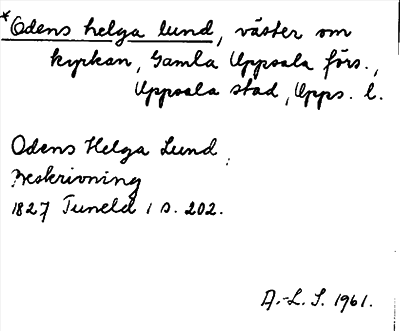 *Odens helga lund, väster om
kyrkan, Gamla Uppsala förs.,
Uppsala stad, Upps. l.
Odens Helga Lund.
Beskrivning
1827 Tuneld 1 s. 202.
A.-L. S. 1961.